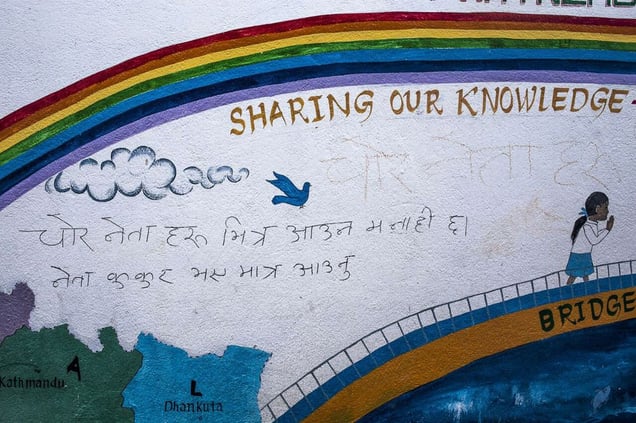 SHARING OUR KNOWLEDGE
चोर नेता हरू
चोर नेता हरू भित्र आउन मनाही छ।
नेता कुकुर भए मात्र आउनु
BRIDGE
A
Kathmandu
L
Dhankuta